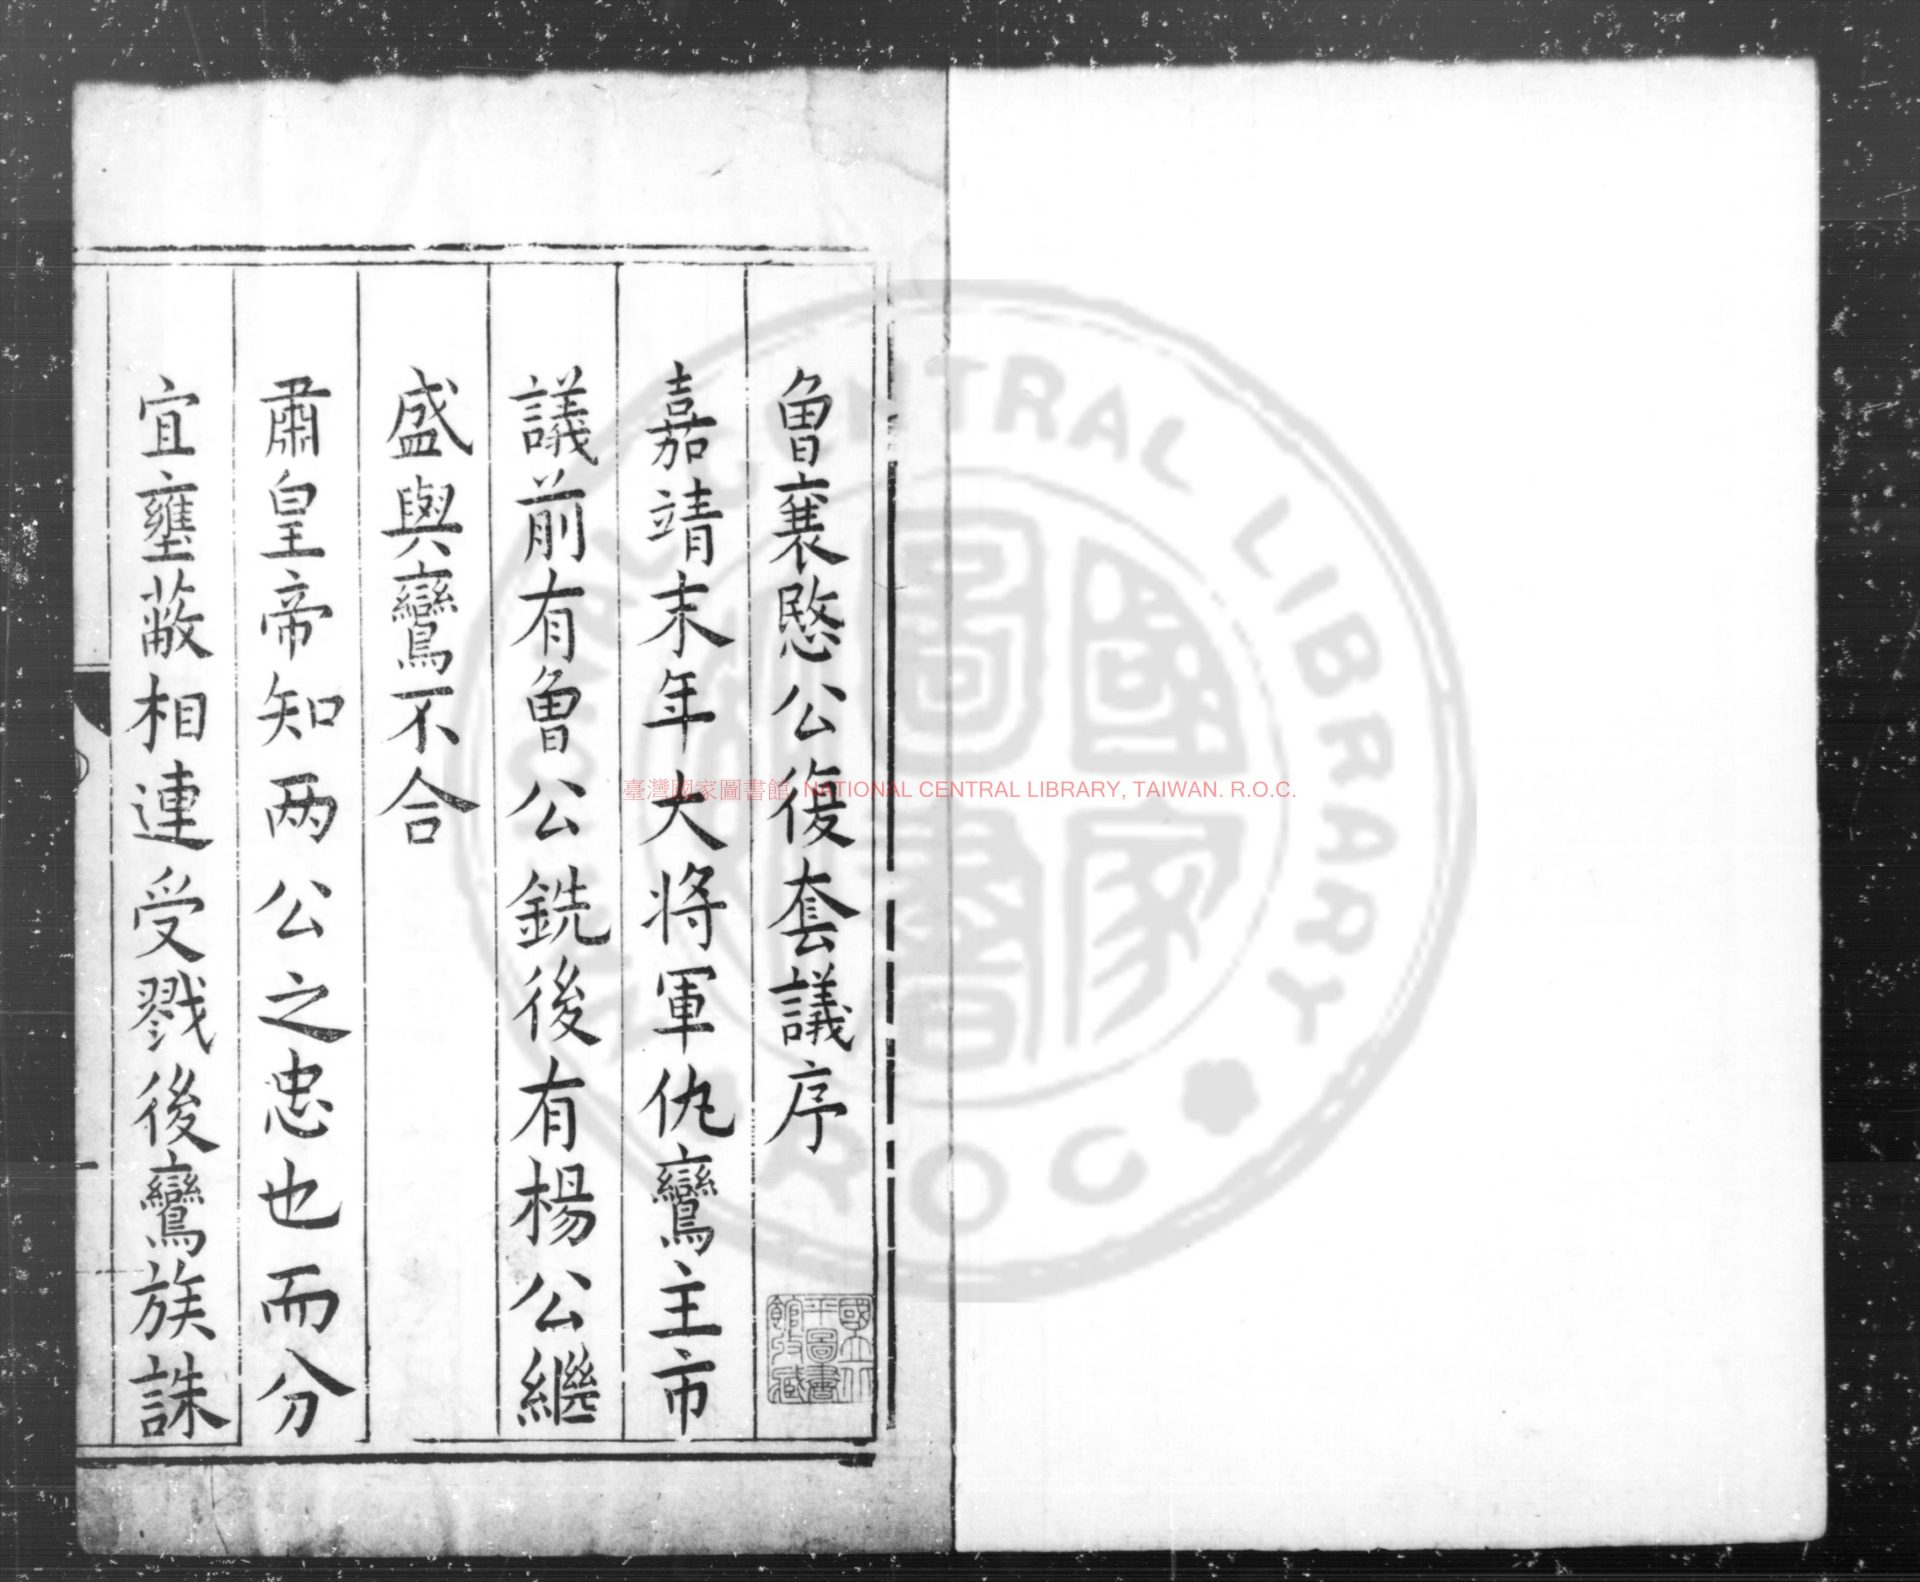 曾襄愍公復套議序
嘉靖末年大將軍仇鸞主市
議前有曾公銑後有楊公繼
盛與鸞不合
肅皇帝知两公之忠也而分
宜壅蔽相連受戮後鸞族誅
國立北平圖書館收藏
臺灣國家圖書館, NATIONAL CENTRAL LIBRARY, TAIWAN. R.O.C.
NATIONAL CENTRAL LIBRARY R.O.C
國家圖書